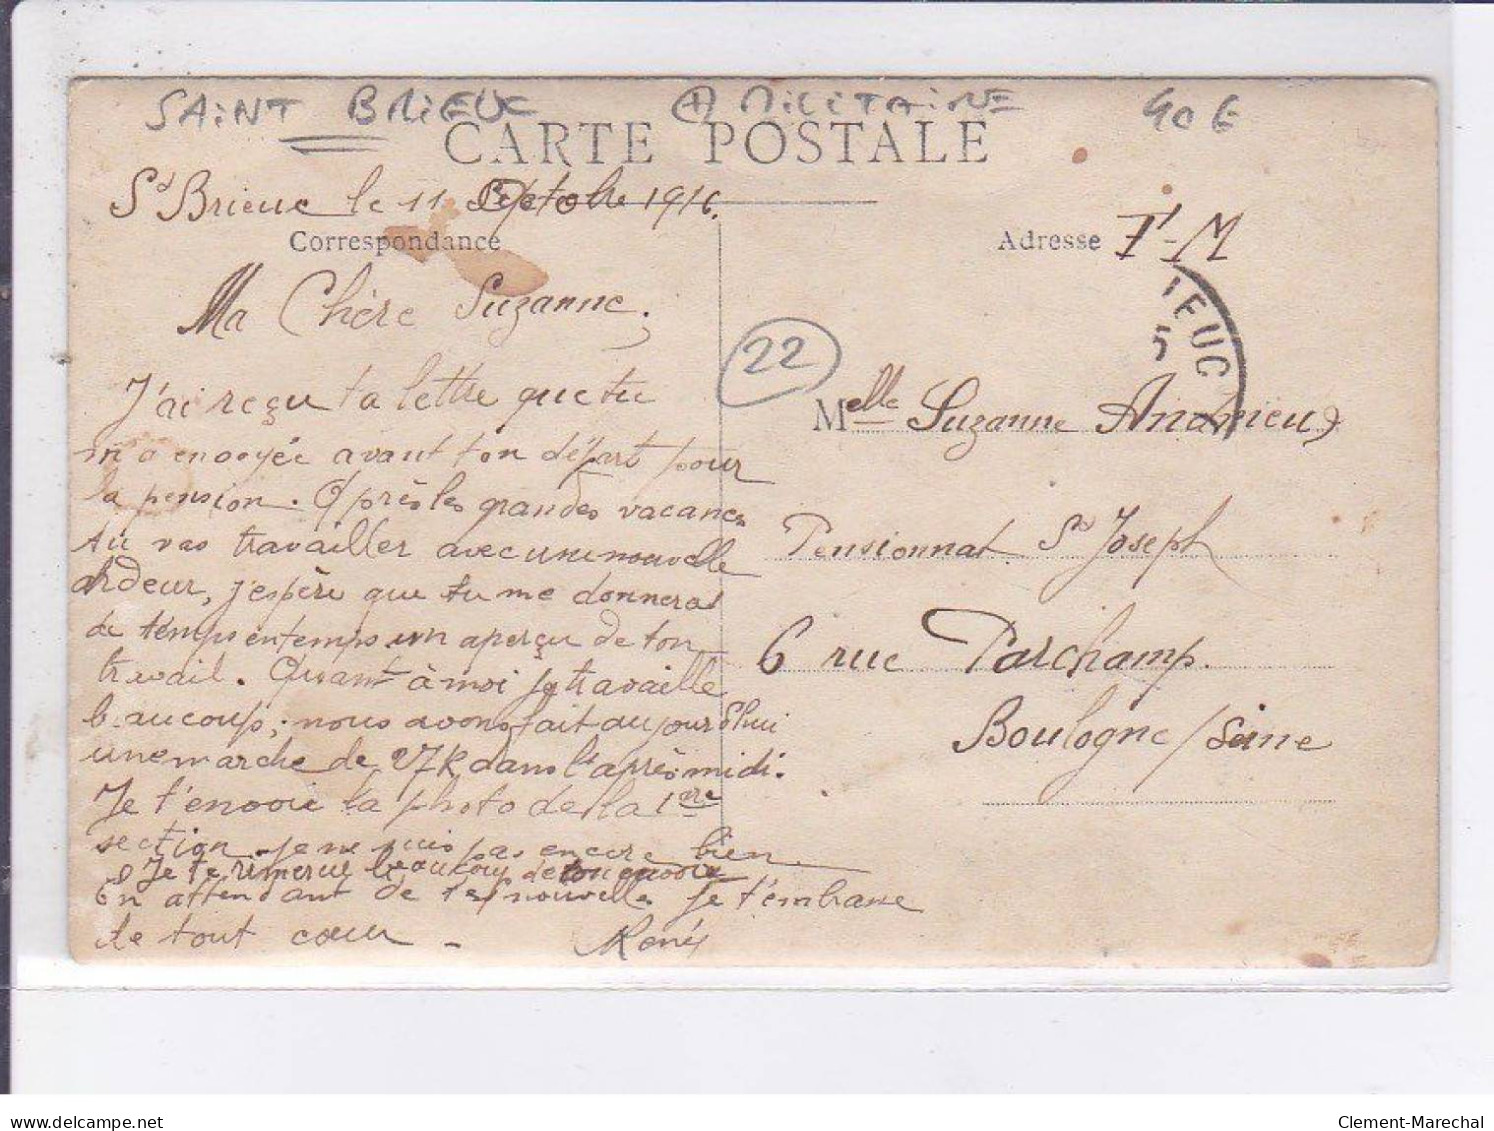 SAINT BRIEUC MILITAIRE 40 €
CARTE POSTALE
St Brieuc le 11 Octobre 1916.
Correspondance
Ma Chère Suzanne,
J'ai reçu ta lettre que tu
m'a envoyée avant ton départ pour
la pension. Après les grandes vacances
tu vas travailler avec une nouvelle
ardeur, j'espère que tu me donneras
de temps en temps un aperçu de ton
travail. Quant à moi je travaille
beaucoup; nous avons fait aujourd'hui
une marche de 27K dans l'après midi.
Je t'envoie la photo de la 1ère
section je ne suis pas encore bien
Je te remercie beaucoup de ton envoie
En attendant de tes nouvelles je t'embrasse
de tout cœur - René
Adresse F-M
IEUC
5
22
Melle Suzanne Andrieux
Pensionnat St Joseph
6 rue Parchamp.
Boulogne /Seine
delcampe.net
Clement-Marechal